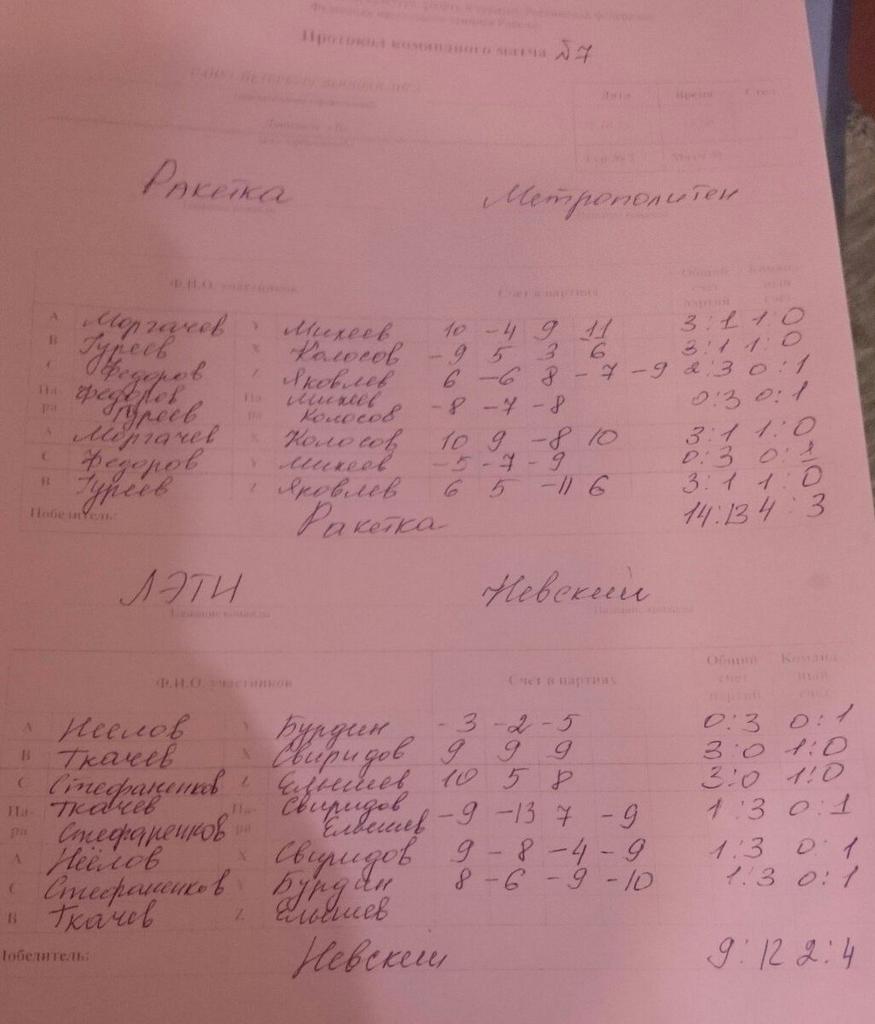 Протокол командного матча №7
Дата Время Стол
Ракетка Метрополитен
Ф.И.О. участников Счет в партиях Общий счет партий Командный счет
A Моргачев Y Михеев 10 -4 9 11 3:1 1:0
B Гуреев X Колосов -9 5 3 6 3:1 1:0
C Федоров Z Яковлев 6 -6 8 -7 -9 2:3 0:1
Па- Федоров Па- Михеев -8 -7 -8 0:3 0:1
ра Гуреев ра Колосов
A Моргачев X Колосов 10 9 -8 10 3:1 1:0
C Федоров Y Михеев -5 -7 -9 0:3 0:1
B Гуреев Z Яковлев 6 5 -11 6 3:1 1:0
Победитель: Ракетка 14:13 4:3
ЛЭТИ Невский
Название команды Название команды
Ф.И.О. участников Счет в партиях Общий счет партий Командный счет
A Неёлов Y Бурдин -3 -2 -5 0:3 0:1
B Ткачев X Свиридов 9 9 9 3:0 1:0
C Стефаненков Z Елышев 10 5 8 3:0 1:0
Па- Ткачев Па- Свиридов -9 -13 7 -9 1:3 0:1
ра Стефаненков ра Елышев
A Неёлов X Свиридов 9 -8 -4 -9 1:3 0:1
C Стефаненков Y Бурдин 8 -6 -9 -10 1:3 0:1
B Ткачев Z Елышев
Победитель: Невский 9:12 2:4